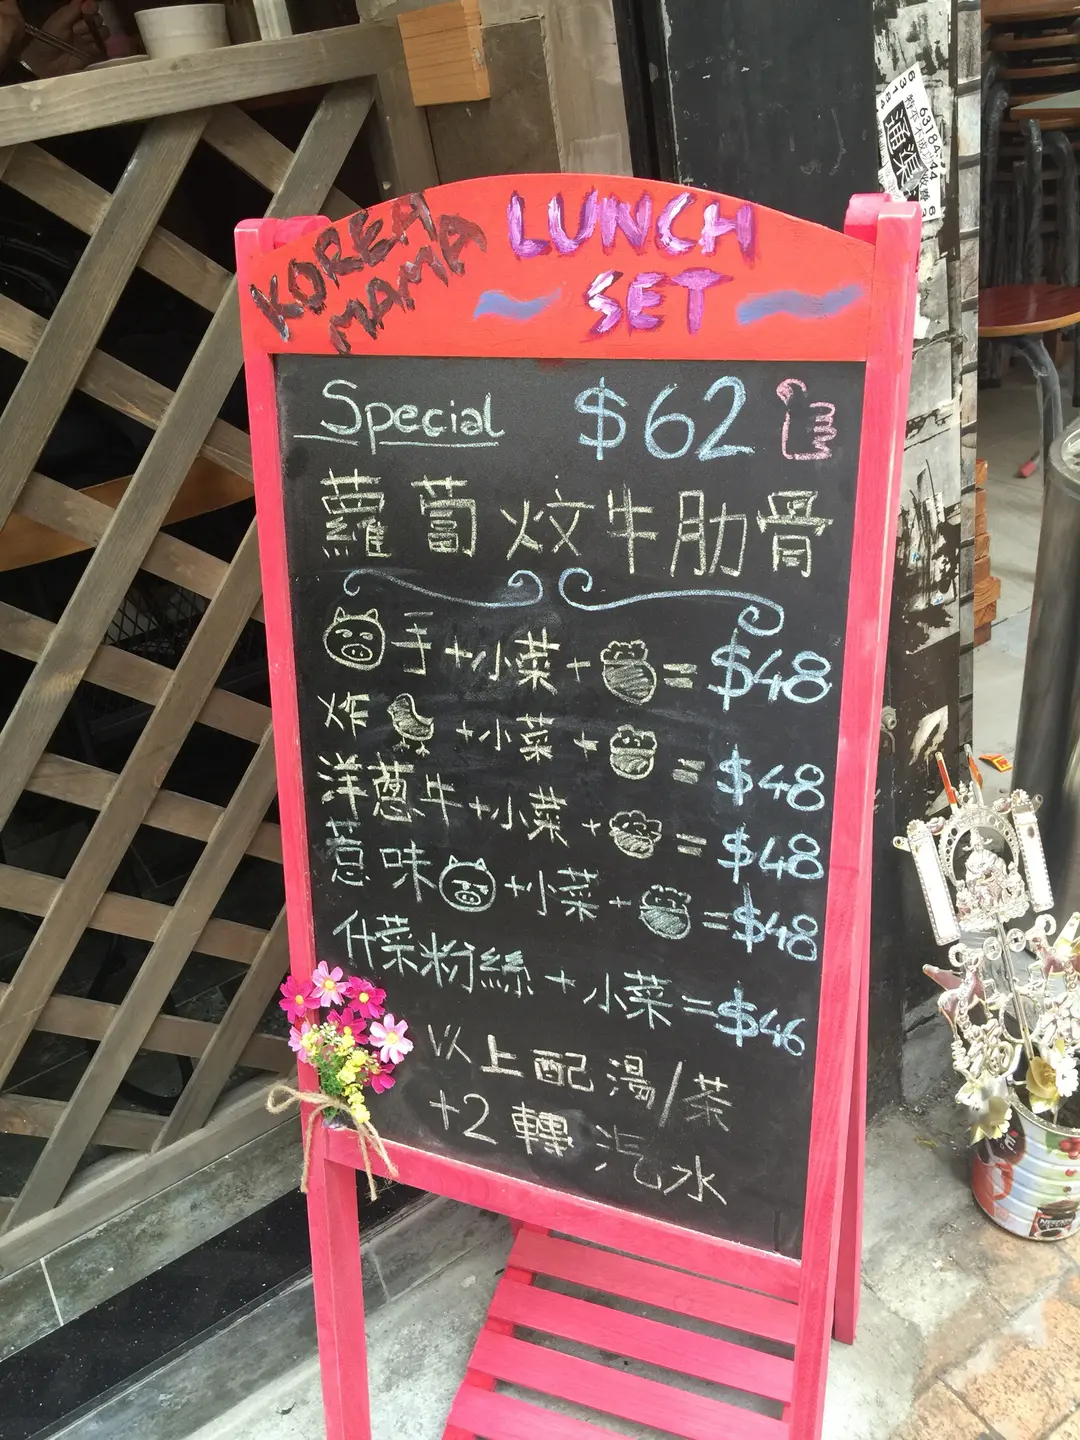 KOREA
MAMA
LUNCH
SET
Special $62
蘿蔔炆牛肋骨
手+小菜+ = $48
炸 +小菜+ = $48
洋蔥牛+小菜+ = $48
惹味 +小菜+ = $48
什菜粉絲+小菜=$46
以上配湯/茶
+2轉汽水
通渠